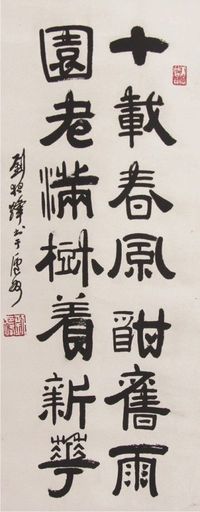 十載春風酣舊雨
園老滿樹着新華
劉 书于